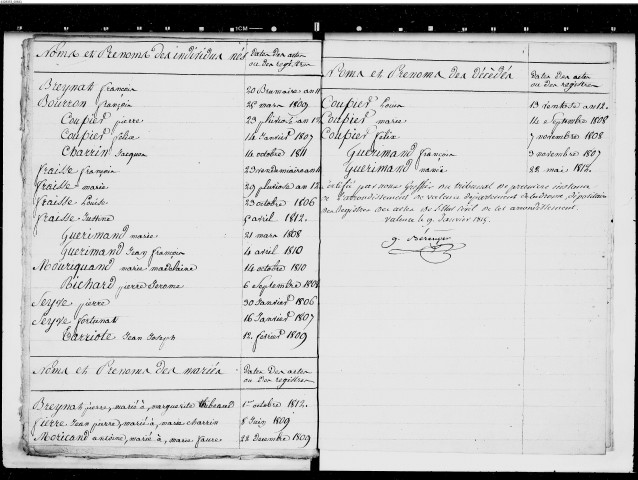 Noms et Prenoms des individus nés
Dates des actes
ou des registres
Breynat françois 20 Brumaire an 11
Bourron françois 28 mars 1809
Coupier pierre 23 pluviose an 12
Coupier felix 14 janvier 1807
Charrin Jacques 14 octobre 1811
fraisse françois 23 vendemiaire an 14
fraisse marie 29 pluviose an 12
fraisse Louise 23 octobre 1806
fraisse Justine 5 avril 1812.
Guerimand marie 21 mars 1808
Guerimand Jean françois 4 avril 1810
Mouriquand marie madelaine 14 octobre 1810
Richard pierre Jerome 6 Septembre 1808
Seyve pierre 30 Janvier 1806
Seyve fortunat 16 Janvier 1807
Tarriote Jean Joseph 12 fevrier 1809
Noms et Prenoms des mariés
Dates des actes
ou des registres
Breynat pierre, marié à, marguerite thibeaud 1er octobre 1812.
Jean pierre, marié à, marie charrin 8 Juin 1809
Moricand antoine, marié à, marie faure 22 Decembre 1809
Noms et Prenoms des Décédés
Dates des actes
ou des registres
Coupier Louis 13 Ventose an 12.
Coupier marie 14 Septembre 1808
Coupier felix 7 novembre 1808
Guerimand françois 3 novembre 1807
Guerimand 22 mai 1812.
Certifié par nous Greffier du tribunal de premiere instance
de l'arrondissement de valence departement de la drome, dépositaire
des Registres des actes de l'Etat civil de cet arrondissement
valence le 9 Janvier 1815.